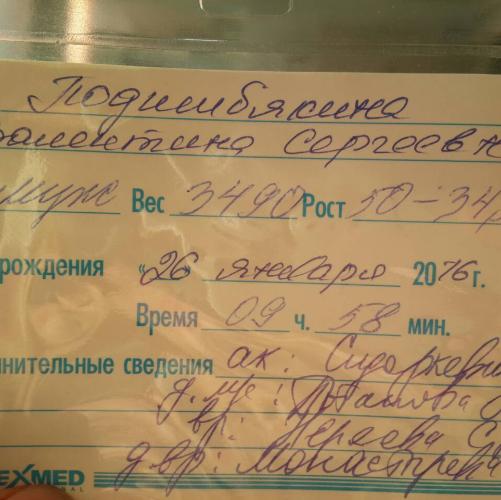 Подшибякина
Валентина Сергеевн
муж Вес 3490 Рост 50-34
рождения "26" января 2016г.
Время 09 ч. 58 мин.
нительные сведения ак: Сидоркеви
д.м/с:
вр:
д.вр: Монастырев
EXMED